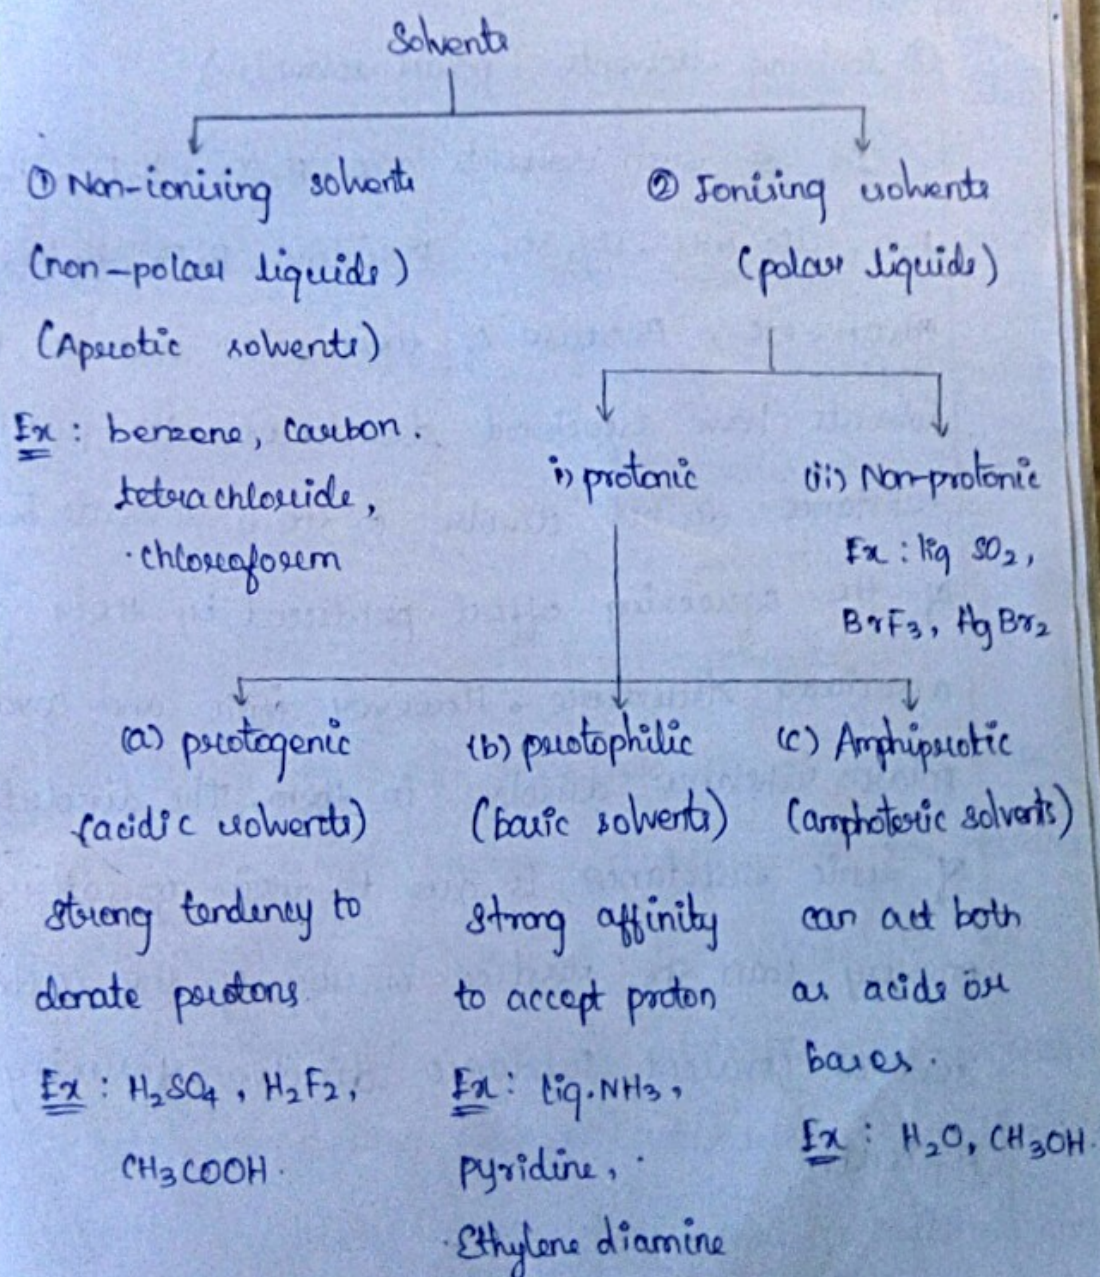 Solvents
① Non-ionising solvents
② Ionising solvents
(non-polar liquids)
(polar liquids)
(Aprotic solvents)
Ex: benzene, carbon.
tetrachloride,
chloroform
i) protonic
(ii) Non-protonic
Ex: liq SO₂,
BrF₃, HgBr₂
(a) protogenic
(acidic solvents)
strong tendency to
donate protons.
Ex: H₂SO₄, H₂F₂,
CH₃COOH.
(b) protophilic
(basic solvents)
strong affinity
to accept proton
Ex: liq.NH₃,
pyridine,
Ethylene diamine
(c) Amphiprotic
(amphoteric solvents)
can act both
as acids or
bases.
Ex: H₂O, CH₃OH.